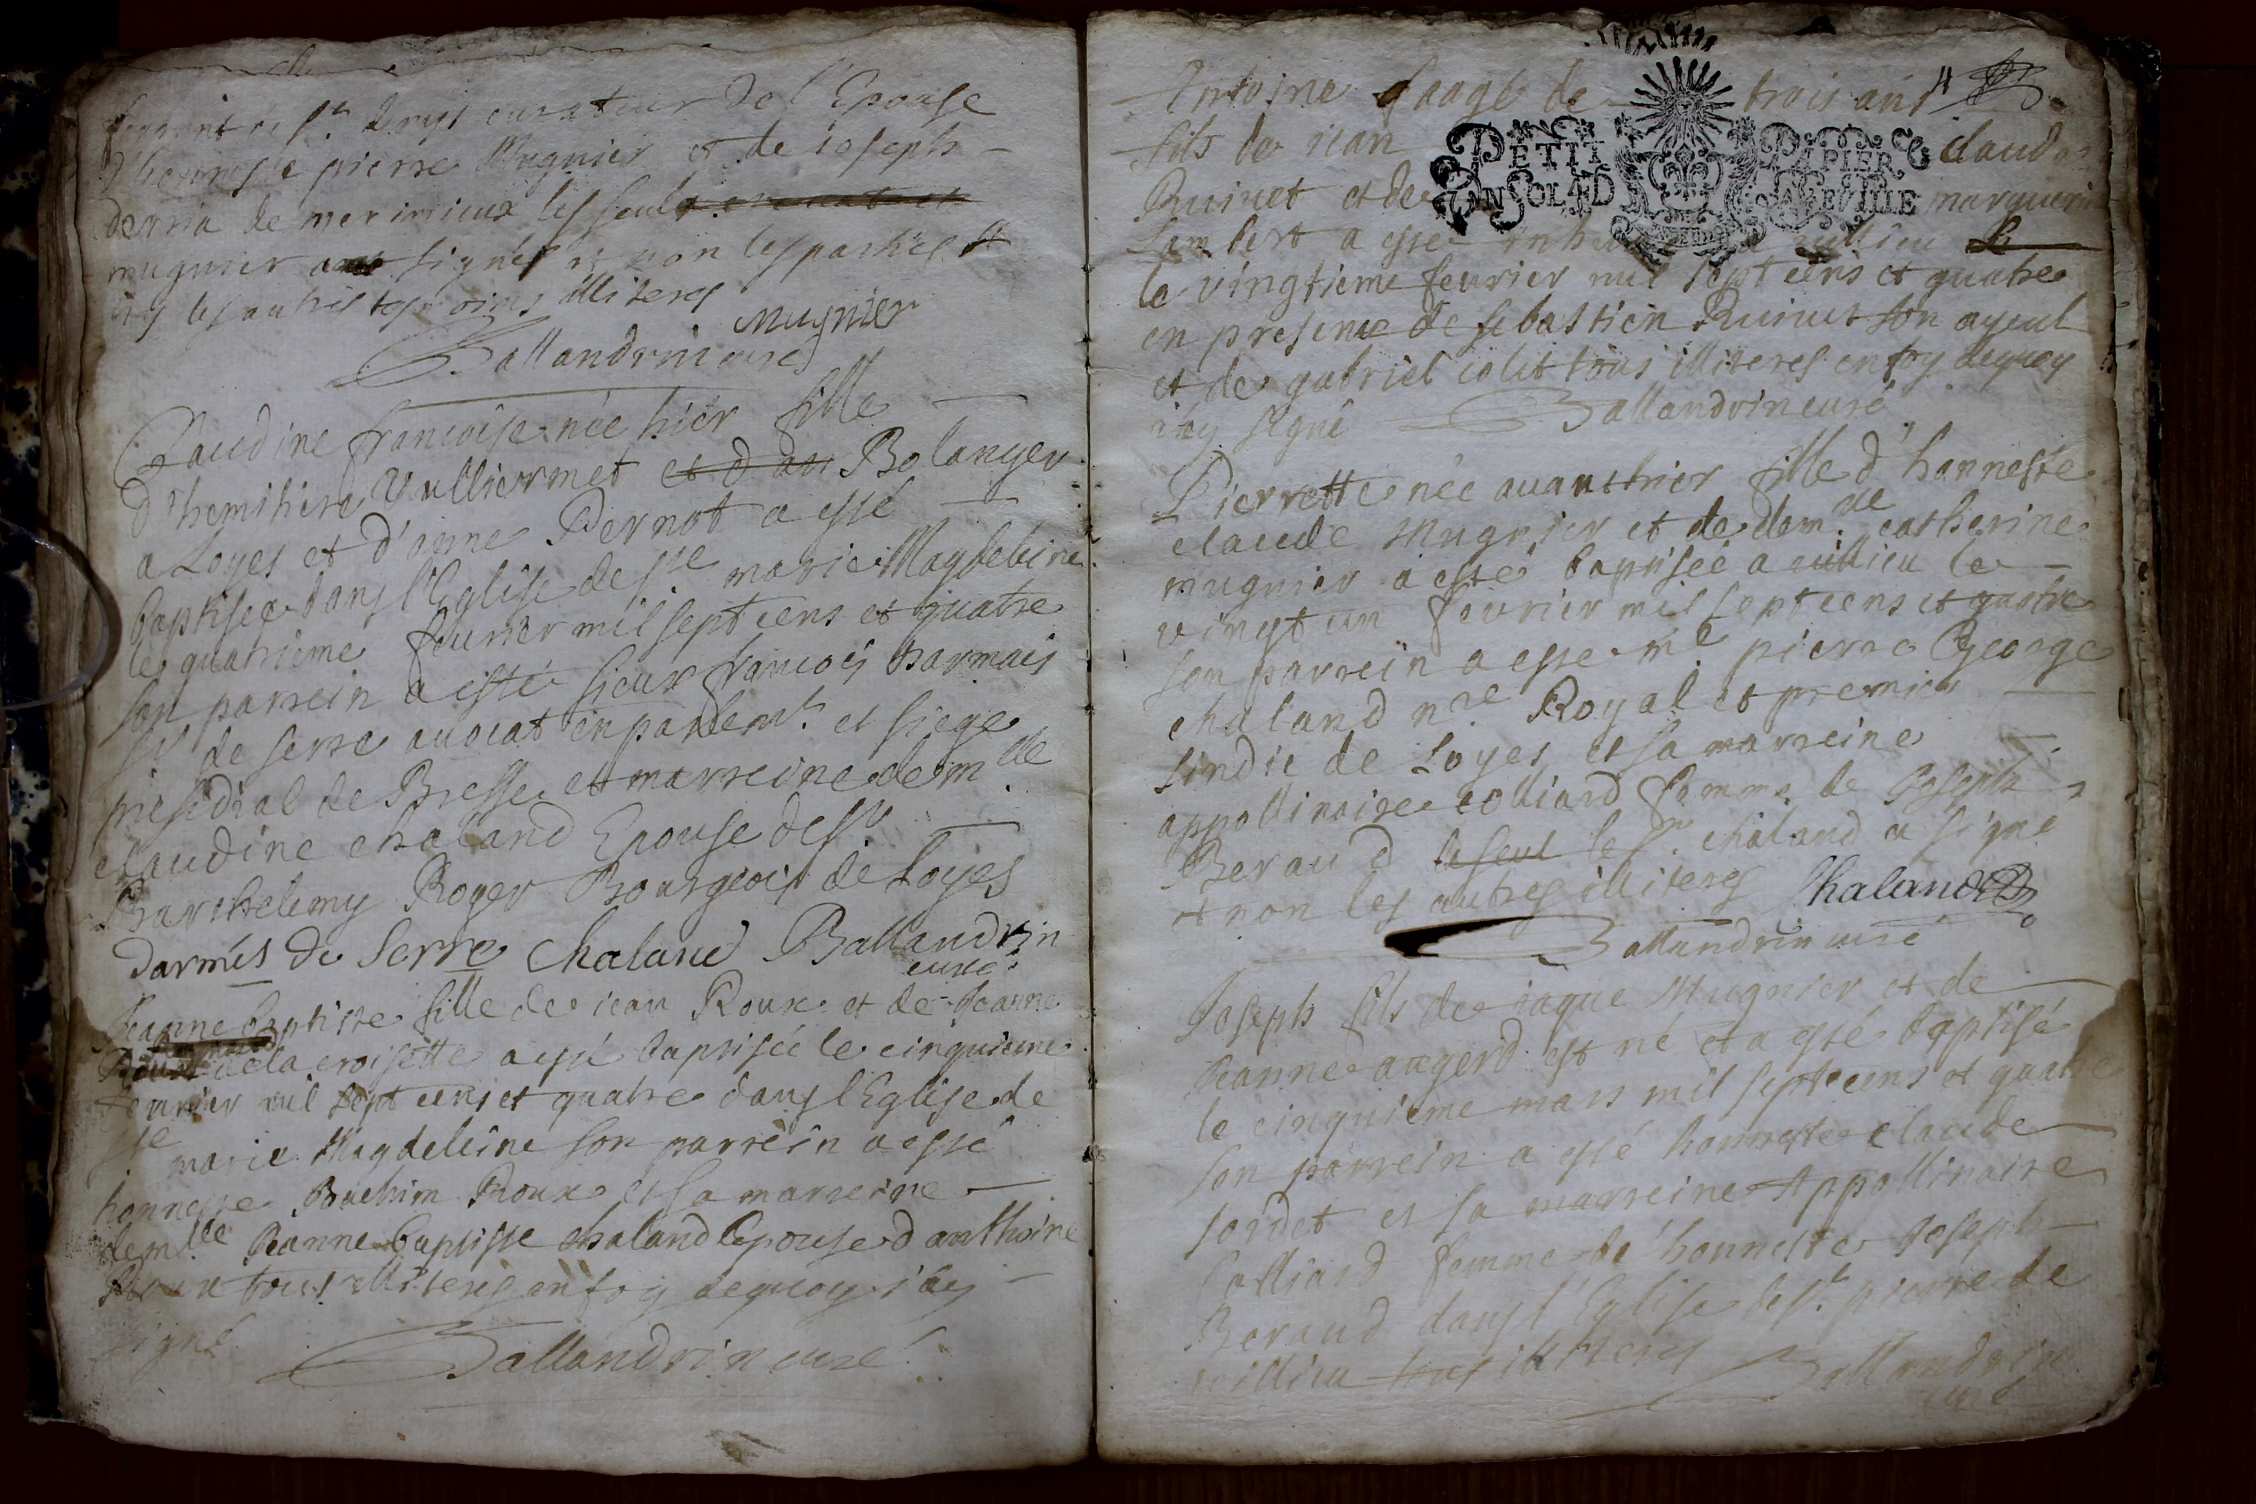 de l'Epouse
pierre Mugnier et de ioseph
de merimieux les seuls
mugnier ont signés et non les parties
ny les autres tesmoins illiteres
Mugnier
Ballandrin curé
Claudine francoise née hier fille
d'hemihere Vulliermet et d'an Bolanger
a Loyes et d'anne Pernot a esté
baptisée dans l'Eglise de ste marie Magdeleine
le quatrieme feurier mil sept cens et quatre
son parrein a esté sieur francois Darmais
sr de serre auocat en parlemt et siege
presidial de Bresse et marreine demlle
claudine chaland Epouse de sr
Barthelemy Roger Bourgeois de Loyes
Darmés De Serre Chaland Ballandrin
curé
Jeanne baptiste fille de iean Roux et de Jeanne
de la croisette a esté baptisée le cinquieme
feurier mil sept cens et quatre dans l'Eglise de
ste marie Magdeleine son parrein a esté
honneste Roux et sa marreine
demlle Jeanne baptiste chaland Epouse d'anthoine
Roux tous illiteres en foy dequoy i'ay
signé
Ballandrin curé
Antoine aagé de trois ans
4
fils de iean claude
PETIT PAPIER
UN SOL 4 D LA FEUILLE
Ruivet et de marguerite
Lambert a esté
le vingtieme feurier mil sept cens et quatre
en presence de sebastien Ruivet son ayeul
et de gabriel iolit tous illiteres en foy dequoy
i'ay signé Ballandrin curé
Pierrette née auanthier fille d'honneste
claude Mugnier et de demlle catherine
mugnier a esté baptisée a uillieu le
vingt un feurier mil sept cens et quatre
son parrein a esté me pierre George
chaland nre Royal et premier
sindic de Loyes et sa marreine
appollinaire colliard femme de Joseph
Beraud le seul le sr chaland a signé
et non les autres illiteres Chaland
Ballandrin curé
Joseph fils de iaque Mugnier et de
Jeanne augerd est né et a esté baptisé
le cinquieme mars mil sept cens et quatre
son parrein a esté honneste claude
sordet et sa marreine Appollinaire
Colliard femme de honneste Joseph
Beraud dans l'Eglise de st pierre de
uillieu tous illiteres
Ballandrin
curé